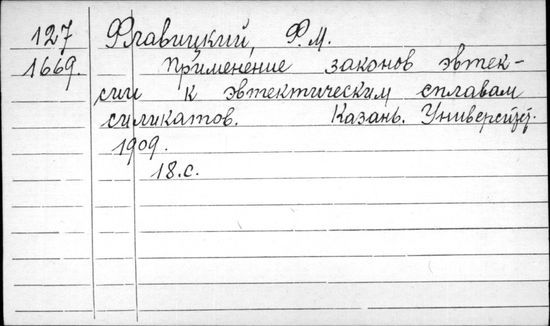 127 Флавицкий, Ф.М.
1669. Применение законов эвтек-
сии к эвтектическим сплавам
силикатов. Казань. Университ.
1909.
18.с.